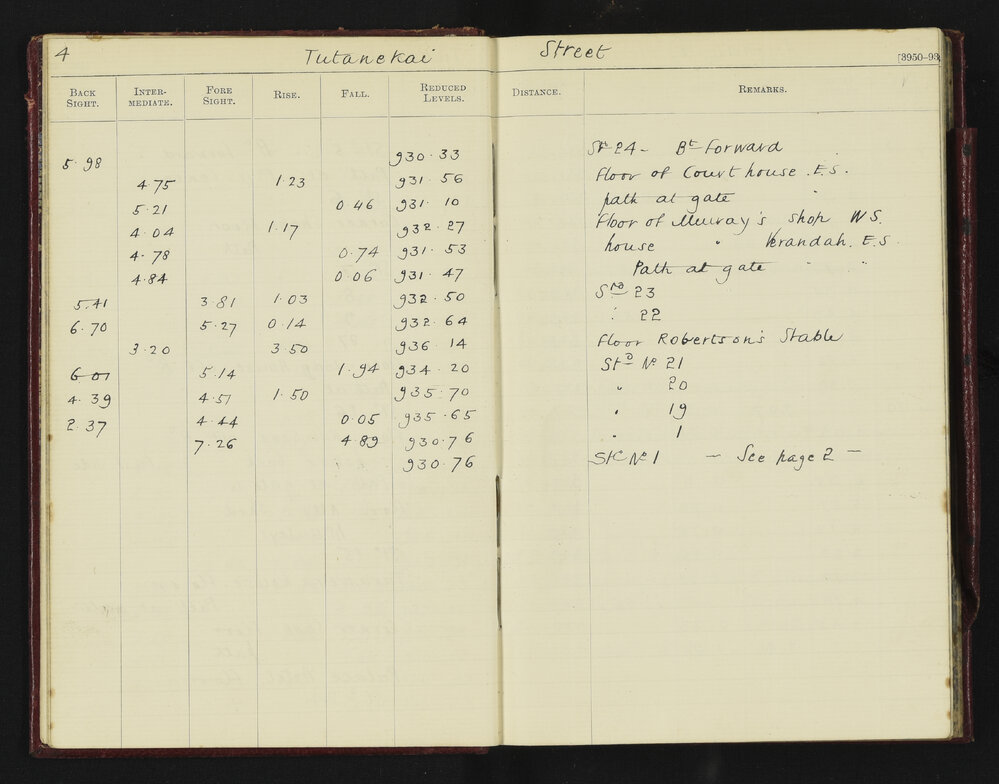 4 Tutanekai Street [3950-93
BACK SIGHT. INTER-MEDIATE. FORE SIGHT. RISE. FALL. REDUCED LEVELS. DISTANCE. REMARKS.
5.98 930.33 Stn 24 - Bt Forward
4.75 1.23 931.56 Floor of Court house. E.S.
5.21 0.46 931.10 path at gate
4.04 1.17 932.27 Floor of Murray's shop W.S.
4.78 0.74 931.53 house " Verandah. E.S.
4.84 0.06 931.47 Path at gate
5.41 3.81 1.03 932.50 23
6.70 5.27 0.14 932.64 " 22
3.20 3.50 936.14 Floor Robertson's Stable
6.01 5.14 1.94 934.20 Std No 21
4.39 4.51 1.50 935.70 " 20
2.37 4.44 0.05 935.65 " 19
7.26 4.89 930.76 " 1
930.76 No 1 - See page 2 -